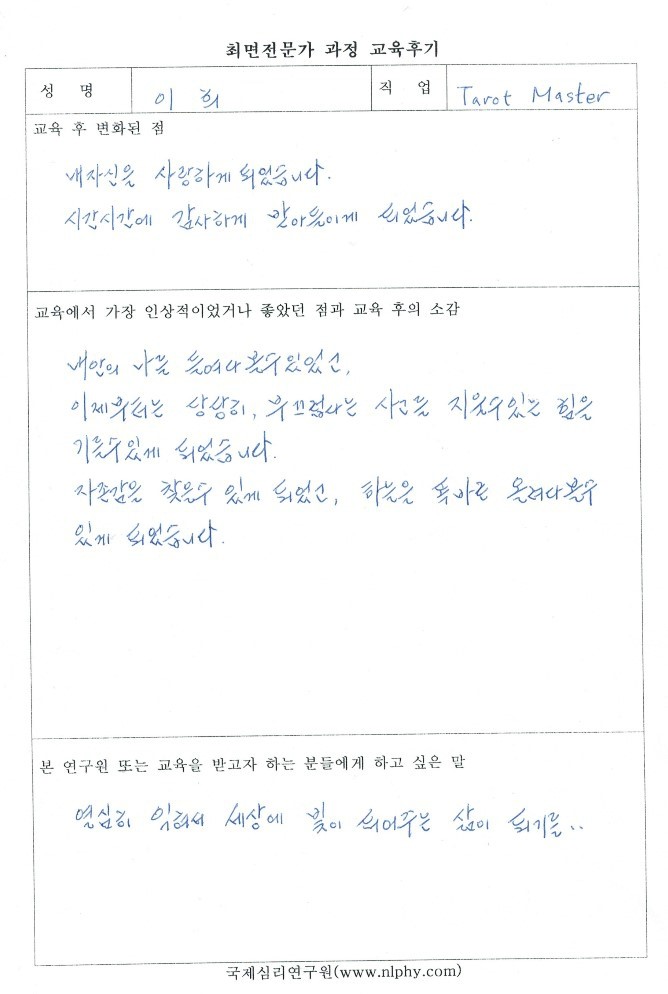 최면전문가 과정 교육후기
성 명 이 희 직 업 Tarot Master
교육 후 변화된 점
내자신을 사랑하게 되었습니다.
시간시간에 감사하게 받아들이게 되었습니다.
교육에서 가장 인상적이었거나 좋았던 점과 교육 후의 소감
내안의 나를 들여다 볼수있었고,
이제부터는 당당히, 부끄럽다는 사고를 지울수있는 힘을
기를수있게 되었습니다.
자존감을 찾을수 있게 되었고, 하늘을 똑바로 올려다볼수
있게 되었습니다.
본 연구원 또는 교육을 받고자 하는 분들에게 하고 싶은 말
열심히 익혀서 세상에 빛이 되어주는 삶이 되기를..
국제심리연구원(www.nlphy.com)